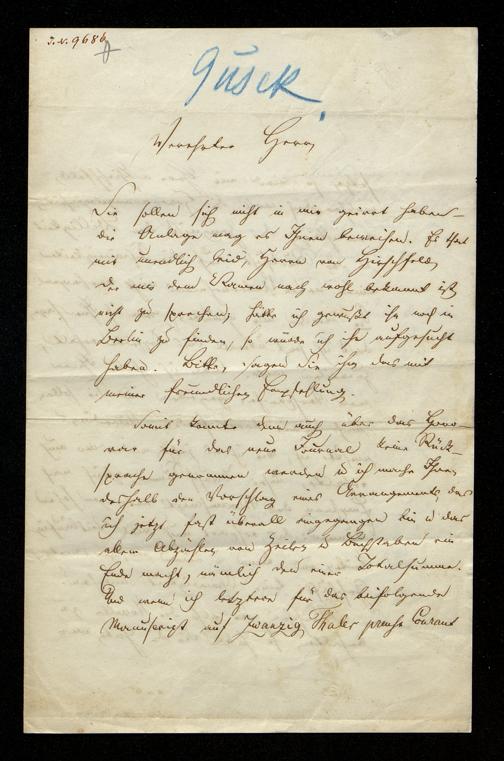 I. N. 9686
Gusek
Verehrter Herr,
Sie sollen sich nicht in mir geirrt haben –
die Anlage mag es Ihnen beweisen. Es thut
mir unendlich leid, Herrn von Hirschfeld,
der mir dem Namen nach wohl bekannt ist,
nicht zu sprechen; hätte ich gewußt ihn noch in
Berlin zu finden, so würde ich ihn aufgesucht
haben. Bitte, sagen Sie ihm das mit
meiner freundlichen Empfehlung.
Somit konnte denn auch über das Hono-
rar für das neue Journal keine Rück-
sprache genommen werden u ich mache Ihnen
deshalb den Vorschlag eines Arrangements, das
ich jetzt fast überall eingegangen bin u das
allem Abzählen von Zeilen u Buchstaben ein
Ende macht, nämlich den einer Totalsumme.
Und wenn ich letztere für das beifolgende
Manuscript auf Zwanzig Thaler preuß Courant